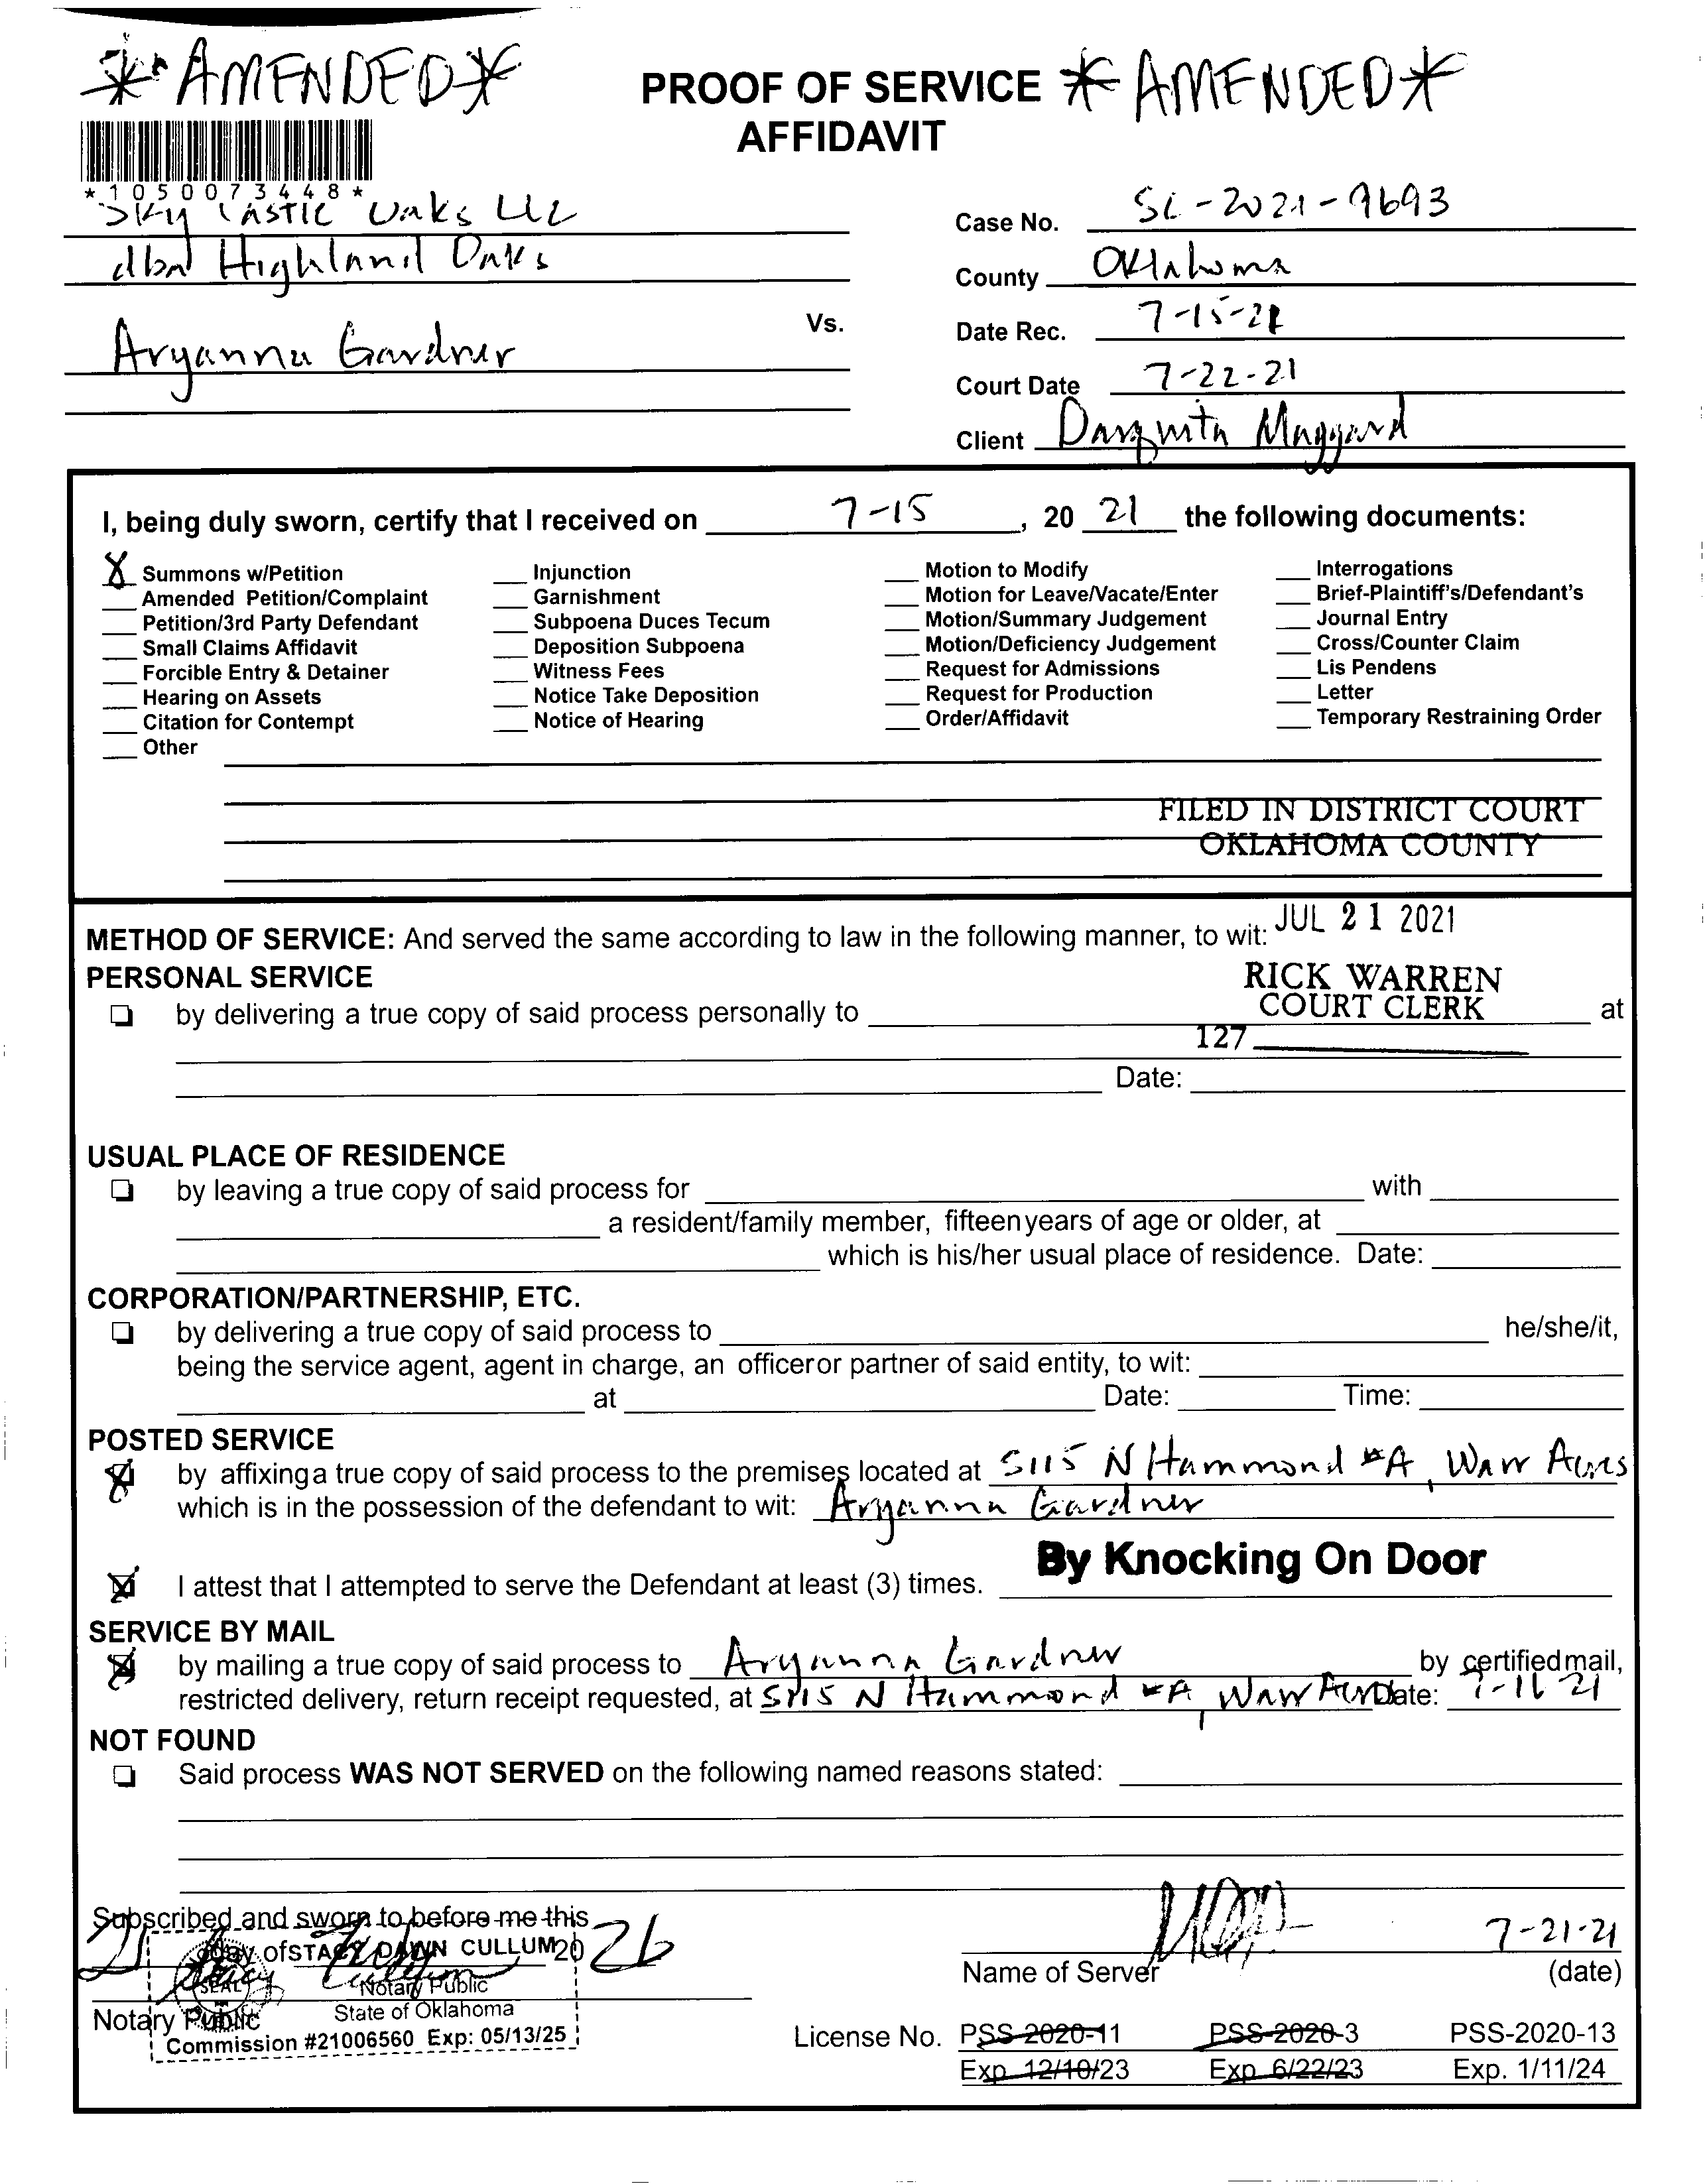 *AMENDED*
PROOF OF SERVICE *AMENDED*
AFFIDAVIT
*1050073448*
Sky Castle Oaks LLC
dba Highland Oaks
Vs.
Aryanna Gardner
Case No. SC-2021-9693
County Oklahoma
Date Rec. 7-15-21
Court Date 7-22-21
Client Darquita Maggard
I, being duly sworn, certify that I received on 7-15, 20 21 the following documents:
X Summons w/Petition
Amended Petition/Complaint
Petition/3rd Party Defendant
Small Claims Affidavit
Forcible Entry & Detainer
Hearing on Assets
Citation for Contempt
Other
Injunction
Garnishment
Subpoena Duces Tecum
Deposition Subpoena
Witness Fees
Notice Take Deposition
Notice of Hearing
Motion to Modify
Motion for Leave/Vacate/Enter
Motion/Summary Judgement
Motion/Deficiency Judgement
Request for Admissions
Request for Production
Order/Affidavit
Interrogations
Brief-Plaintiff's/Defendant's
Journal Entry
Cross/Counter Claim
Lis Pendens
Letter
Temporary Restraining Order
FILED IN DISTRICT COURT
OKLAHOMA COUNTY
JUL 21 2021
RICK WARREN
COURT CLERK
127
METHOD OF SERVICE: And served the same according to law in the following manner, to wit:
PERSONAL SERVICE
by delivering a true copy of said process personally to at
Date:
USUAL PLACE OF RESIDENCE
by leaving a true copy of said process for with
a resident/family member, fifteen years of age or older, at
which is his/her usual place of residence. Date:
CORPORATION/PARTNERSHIP, ETC.
by delivering a true copy of said process to he/she/it,
being the service agent, agent in charge, an officer or partner of said entity, to wit:
at Date: Time:
POSTED SERVICE
X by affixing a true copy of said process to the premises located at 5115 N Hammond #A, Warr Acres
which is in the possession of the defendant to wit: Aryanna Gardner
By Knocking On Door
X I attest that I attempted to serve the Defendant at least (3) times.
SERVICE BY MAIL
X by mailing a true copy of said process to Aryanna Gardner by certified mail,
restricted delivery, return receipt requested, at 5115 N Hammond #A, Warr Acres Date: 7-16-21
NOT FOUND
Said process WAS NOT SERVED on the following named reasons stated:
Subscribed and sworn to before me this
21 day of July 20 21
Stacy Cullum
Notary Public
STACY DAWN CULLUM
SEAL
Notary Public
State of Oklahoma
Commission #21006560 Exp: 05/13/25
7-21-21
Name of Server (date)
License No. PSS-2020-11 PSS-2020-3 PSS-2020-13
Exp. 12/10/23 Exp. 6/22/23 Exp. 1/11/24